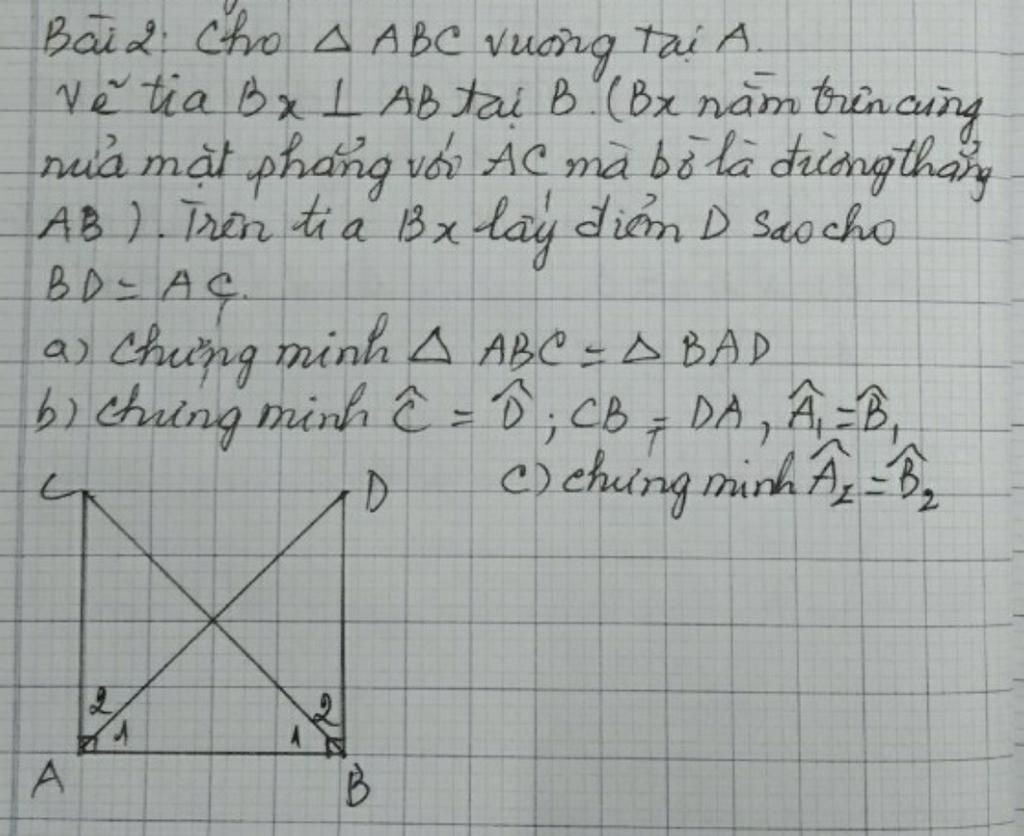 Bài 2: Cho △ ABC vuông tại A.
Vẽ tia Bx ⊥ AB tại B. (Bx nằm trên cùng
nửa mặt phẳng với AC mà bờ là đường thẳng
AB). Trên tia Bx lấy điểm D sao cho
BD = AC.
a) Chứng minh △ ABC = △ BAD
b) chứng minh Ĉ = D̂ ; CB = DA, Â₁ = B̂₁
c) chứng minh Â₂ = B̂₂
C D
2 2
1 1
A B